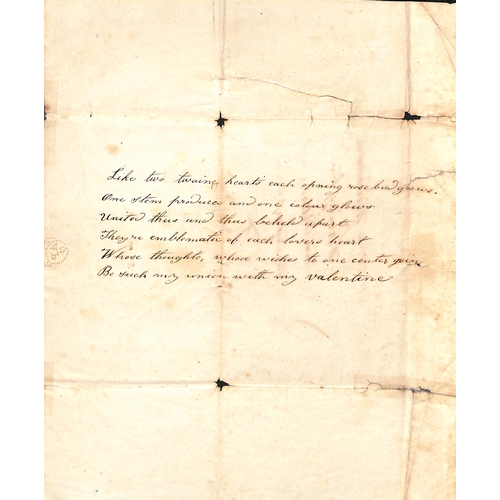 Like two twaine hearts each opning rose bud grows.
One stem produces and one colour glows
United thus and thus beheld apart
They're emblematic of each lovers heart
Whose thoughts, whose wishes to one center join
Be such my union with my valentine